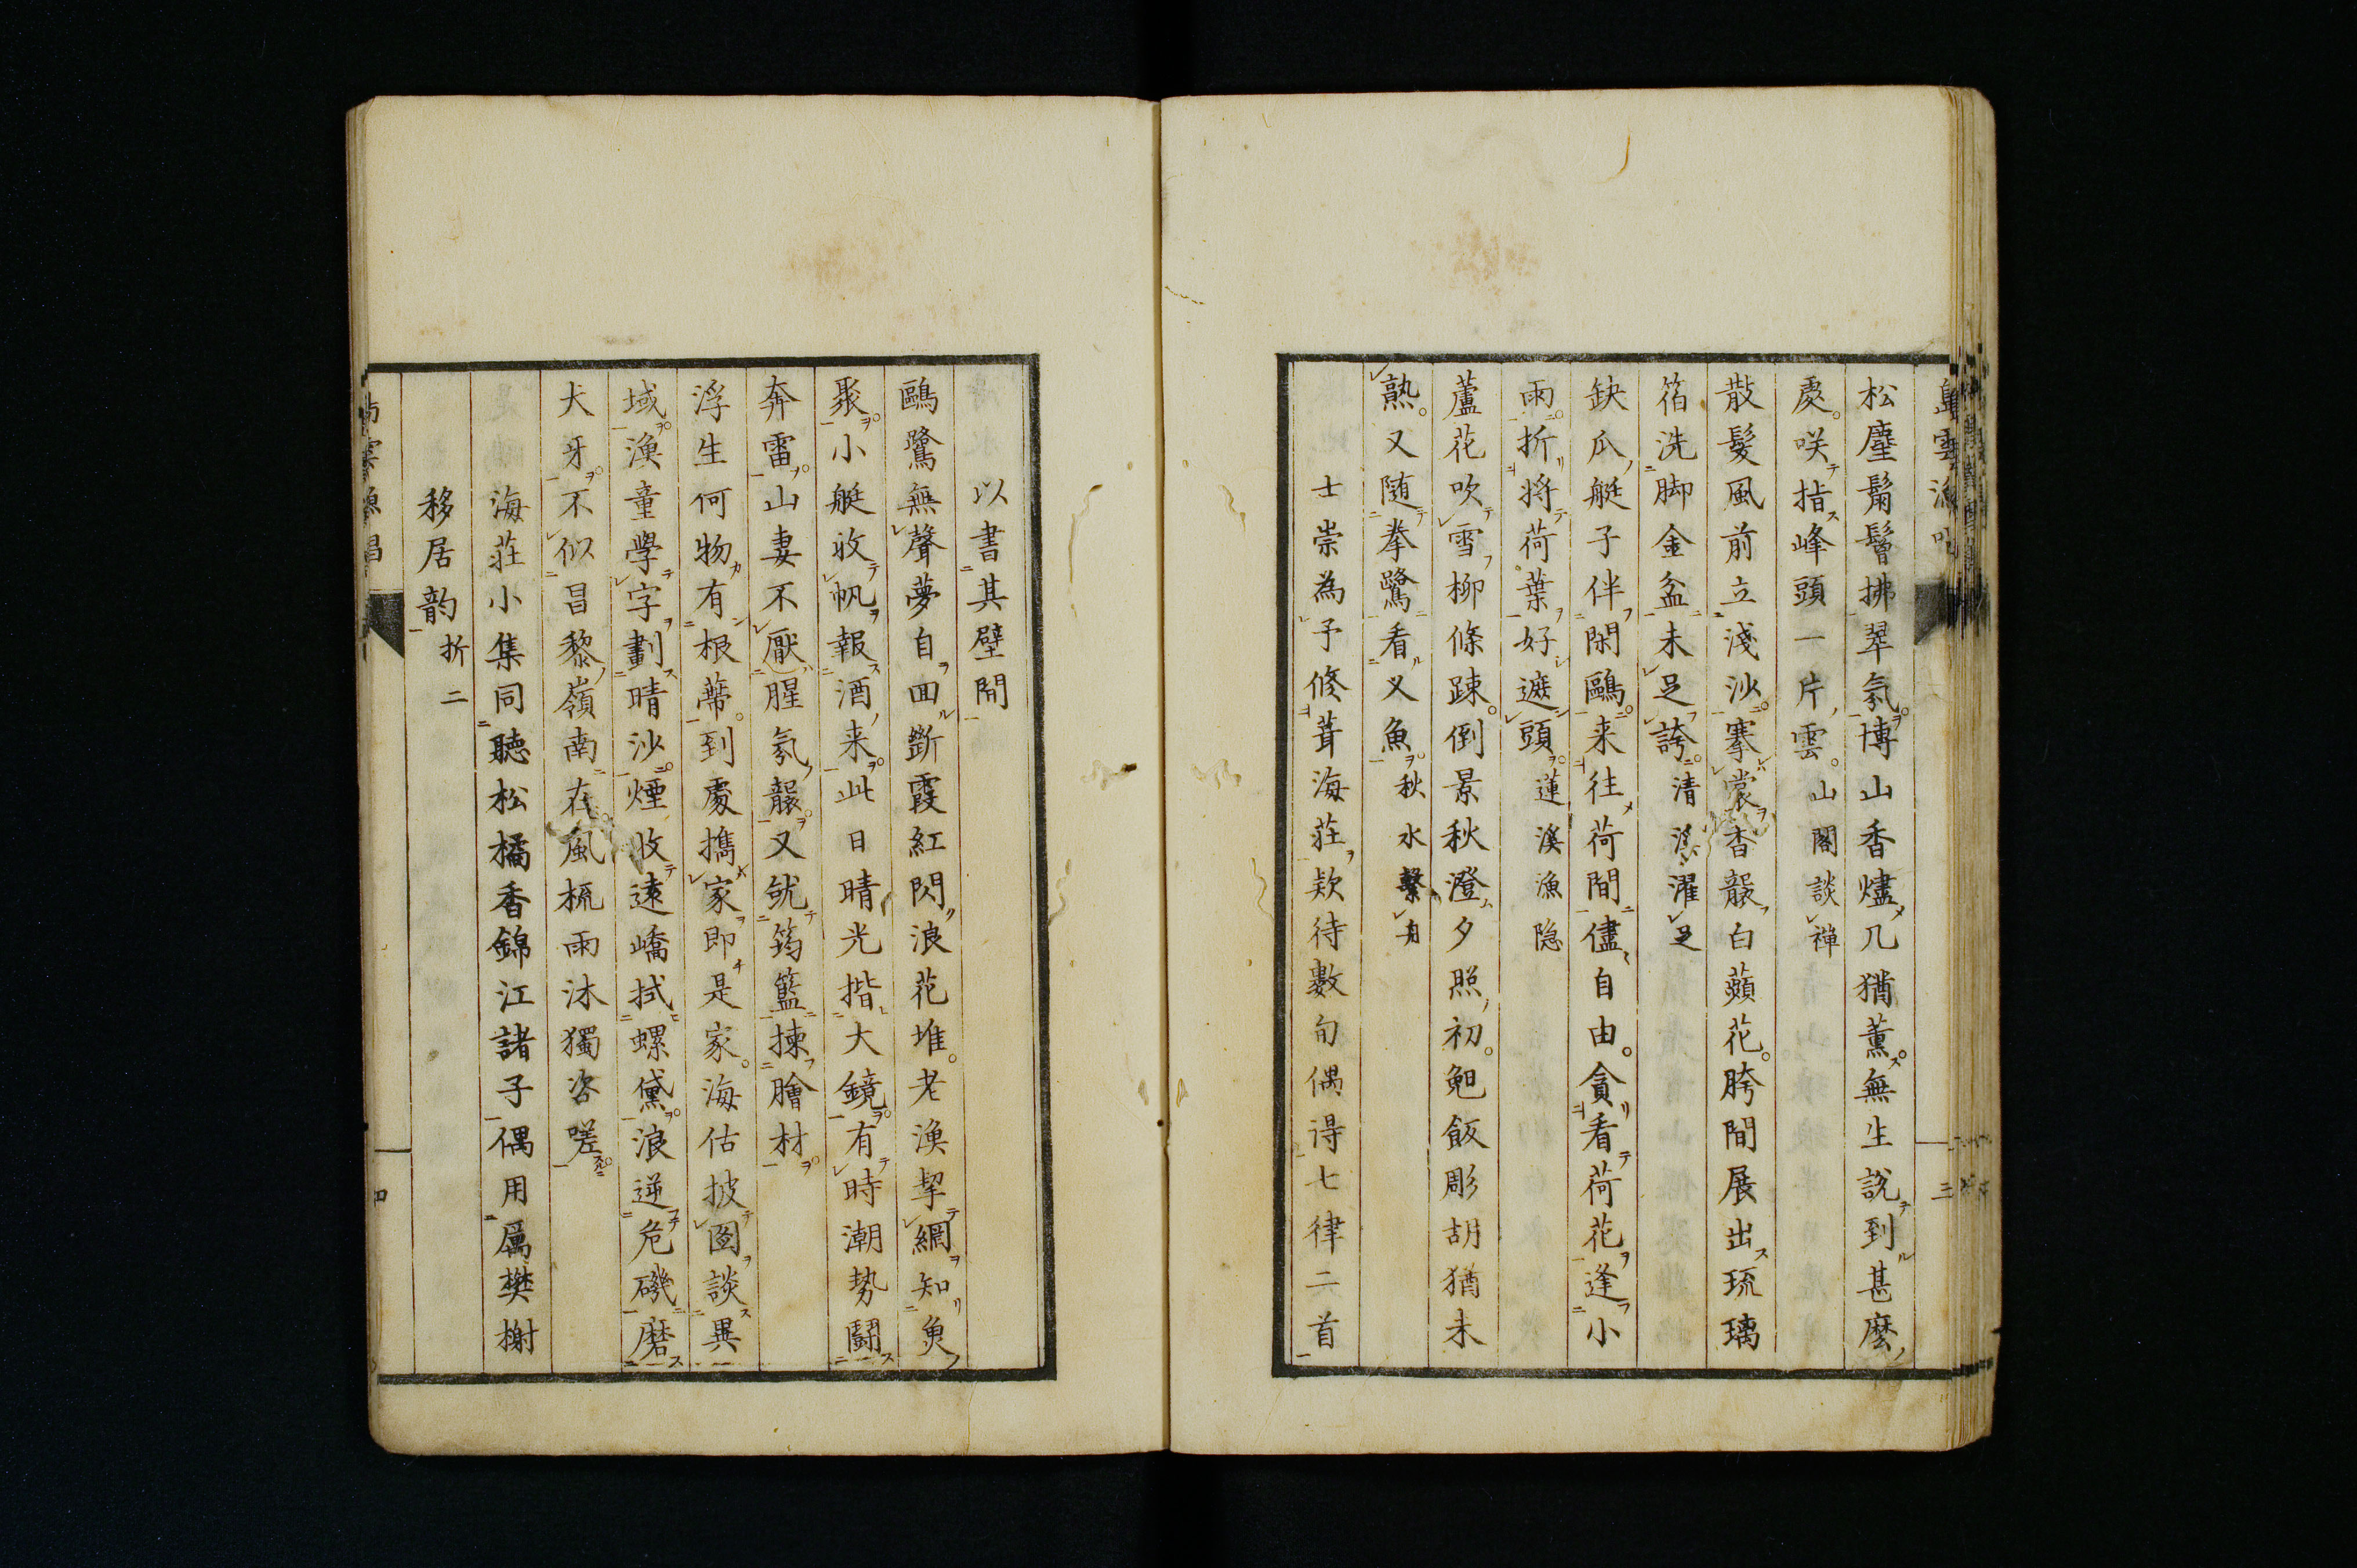 松塵鬅鬙拂翠氛博山香燼几猶薰無生説到甚麼
處咲指峰頭一片雲山閣談禅
散髮風前立淺沙搴裳香襲白蘋花胯間展出琉璃
箔洗脚金盆未足誇清溪濯足
缺瓜艇子伴閑鷗来往荷間儘自由貪看荷花逢小
雨折将荷葉好遮頭蓮溪漁隐
蘆花吹雪柳條踈倒景秋澄夕照初鮑飯彫胡猶未
熟又随拳鷺看叉魚秋水繫舟
士崇為予修葺海荘欵待數旬偶得七律二首
以書其壁間
鷗鷺無聲夢自囬斷霞紅閃浪花堆老漁挈網知魚
聚小艇收帆報酒来此日晴光揩大鏡有時潮勢鬪
奔雷山妻不厭腥氛襲又就筠籃揀膾材
浮生何物有根蔕到處攜家即是家海估披圖談異
域漁童學字劃晴沙煙收遠嶠拭螺黛浪逆危磯磨
犬牙不似昌黎嶺南在風梳雨沐獨咨嗟
海荘小集同聴松橘香錦江諸子偶用厲樊榭
移居韵折二
三